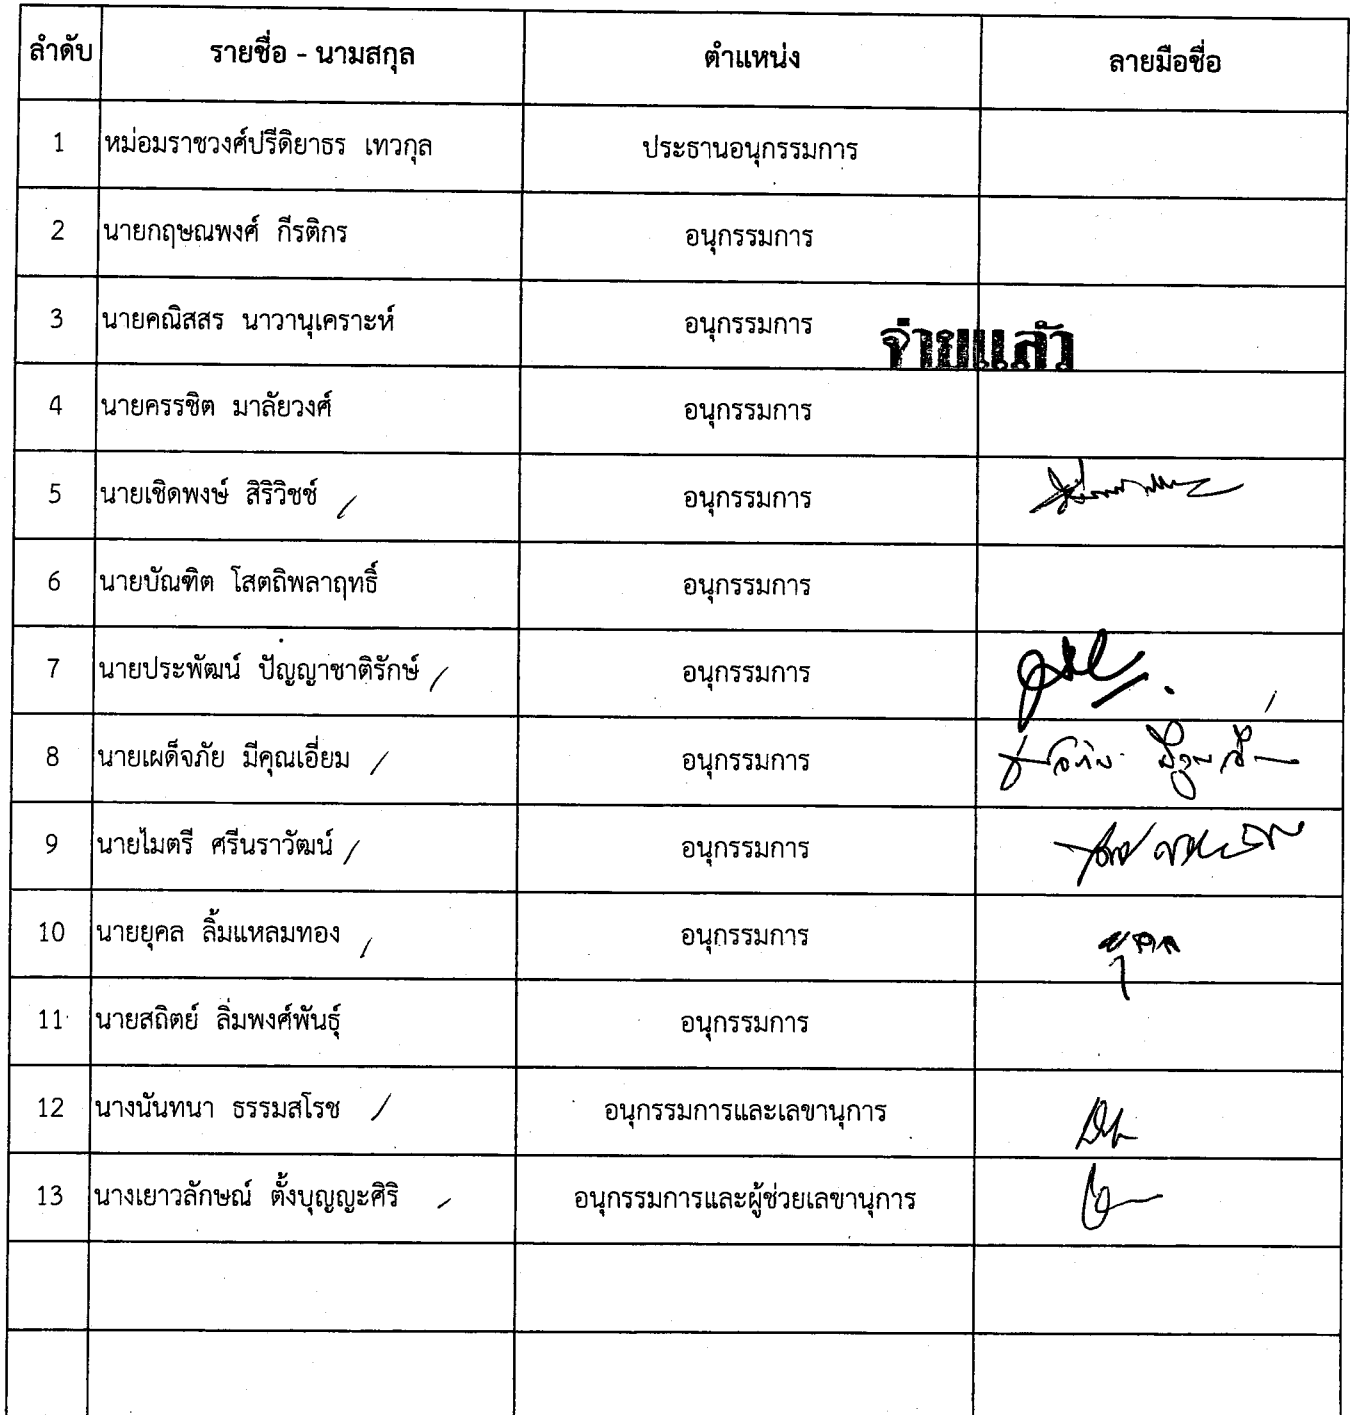 ลำดับ รายชื่อ - นามสกุล ตำแหน่ง ลายมือชื่อ
1 หม่อมราชวงศ์ปรีดิยาธร เทวกุล ประธานอนุกรรมการ
2 นายกฤษณพงศ์ กีรติกร อนุกรรมการ
3 นายคณิสสร นาวานุเคราะห์ อนุกรรมการ จ่ายแล้ว
4 นายครรชิต มาลัยวงศ์ อนุกรรมการ
5 นายเชิดพงษ์ สิริวิชช์ / อนุกรรมการ
6 นายบัณฑิต โสตถิพลาฤทธิ์ อนุกรรมการ
7 นายประพัฒน์ ปัญญาชาติรักษ์ / อนุกรรมการ
8 นายเผด็จภัย มีคุณเอี่ยม / อนุกรรมการ
9 นายไมตรี ศรีนราวัฒน์ / อนุกรรมการ
10 นายยุคล ลิ้มแหลมทอง / อนุกรรมการ ยุคล
11 นายสถิตย์ ลิ่มพงศ์พันธุ์ อนุกรรมการ
12 นางนันทนา ธรรมสโรช / อนุกรรมการและเลขานุการ
13 นางเยาวลักษณ์ ตั้งบุญญะศิริ / อนุกรรมการและผู้ช่วยเลขานุการ